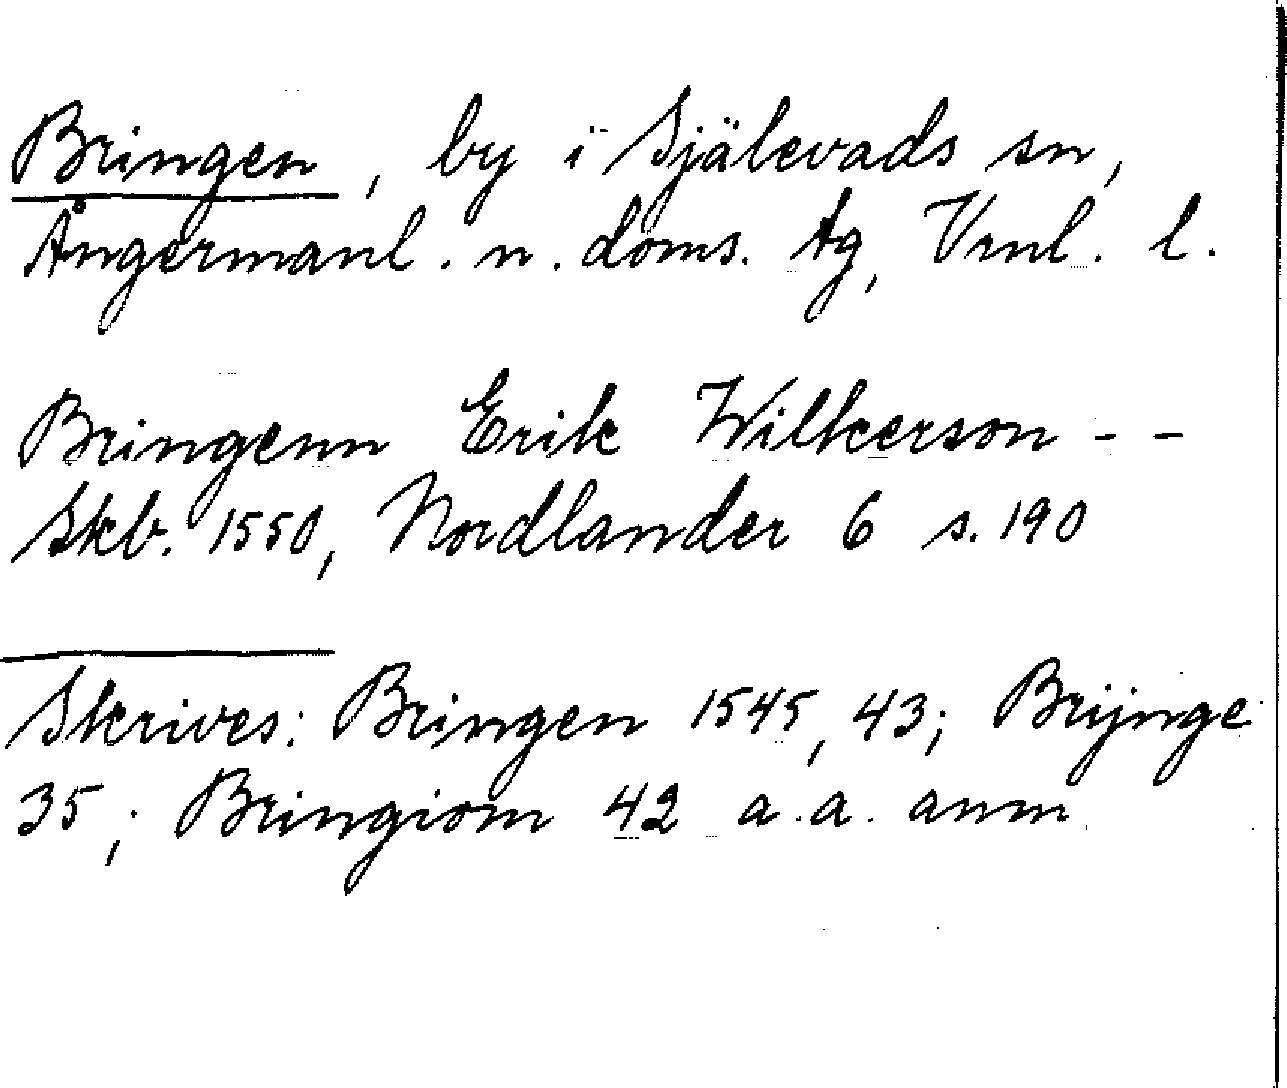 Bringen, by i Själevads sn,
Ångermanl. n. doms. tg, Vrnl. l.
Bringenn Erik Wilkerson - -
Skb. 1550, Nordlander 6 s. 190
Skrives: Bringen 1545, 43; Brijnge
35; Bringiom 42 a.a. anm